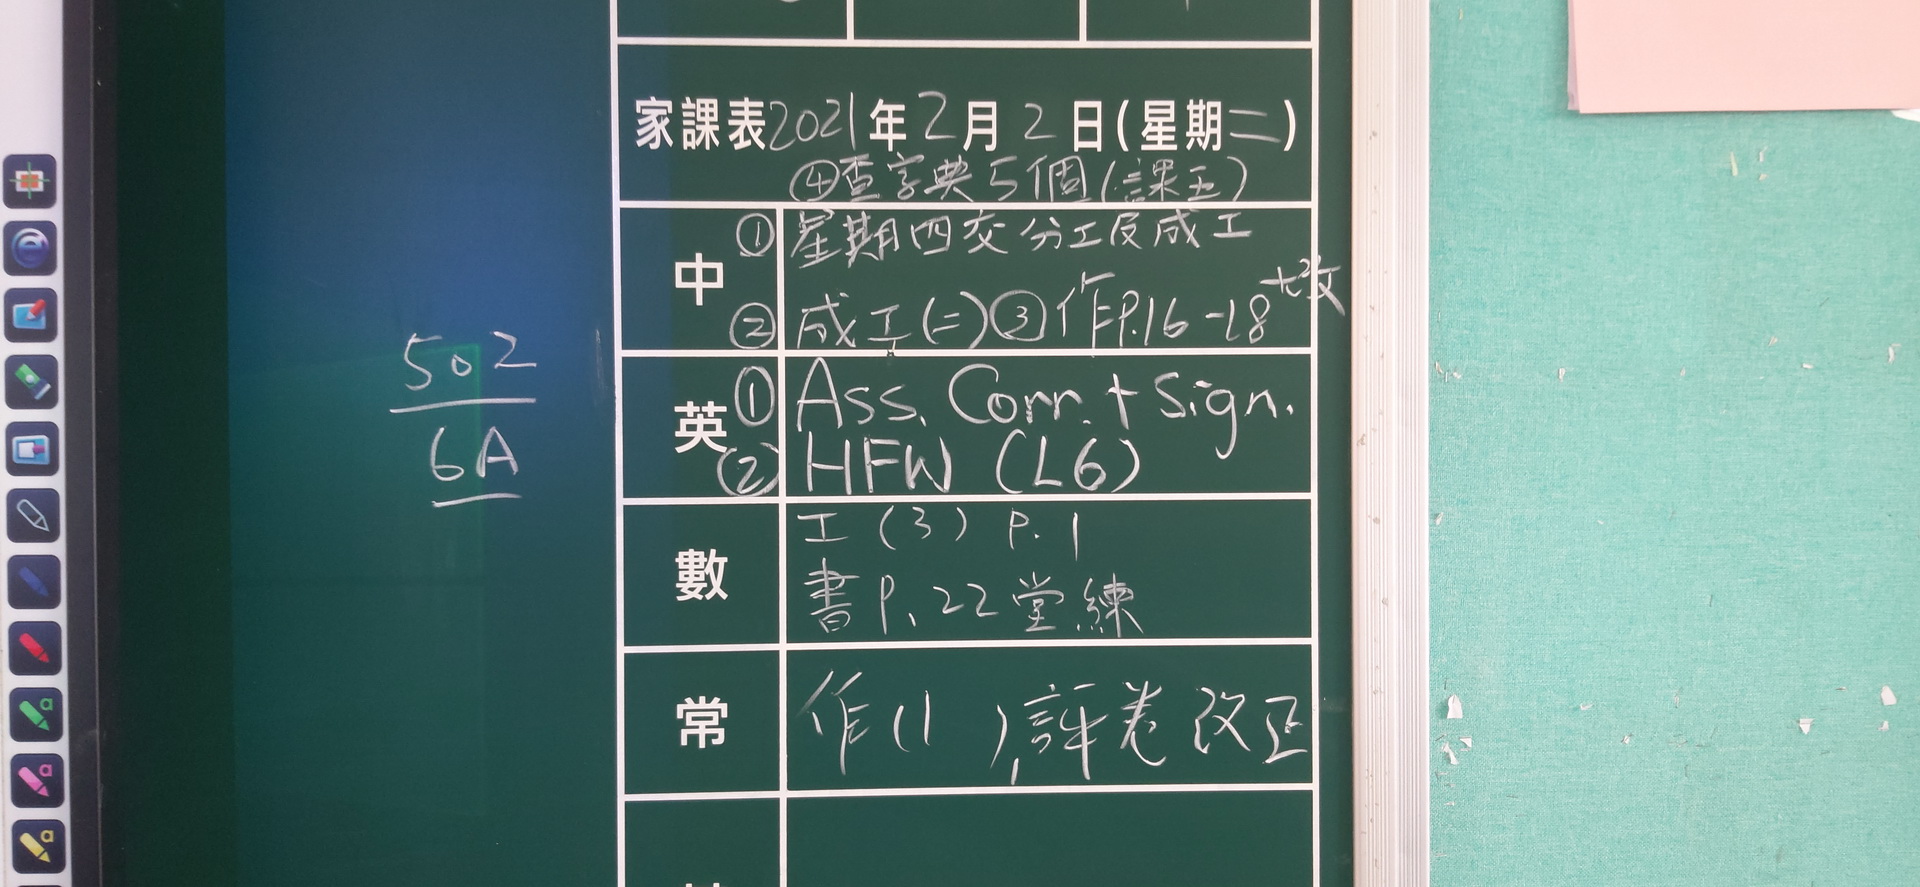 家課表2021年2月2日(星期二)
④查字典5個(課五)
中
①星期四交分工及成工
②成工(二)③作P.16-18
英
①Ass. Corr. + Sign.
(2)HFW (L6)
數
工(3) P.1
書P.22堂練
常
作(1 ),評卷改正
502
6A